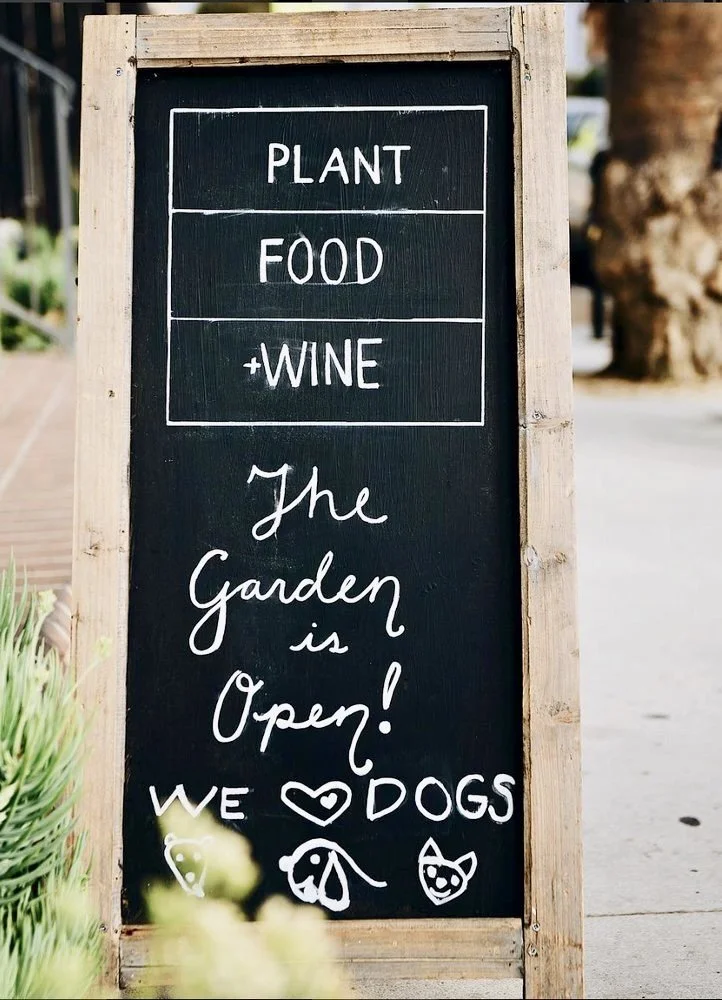 PLANT
FOOD
+WINE
The
Garden
is
Open!
WE ♡ DOGS